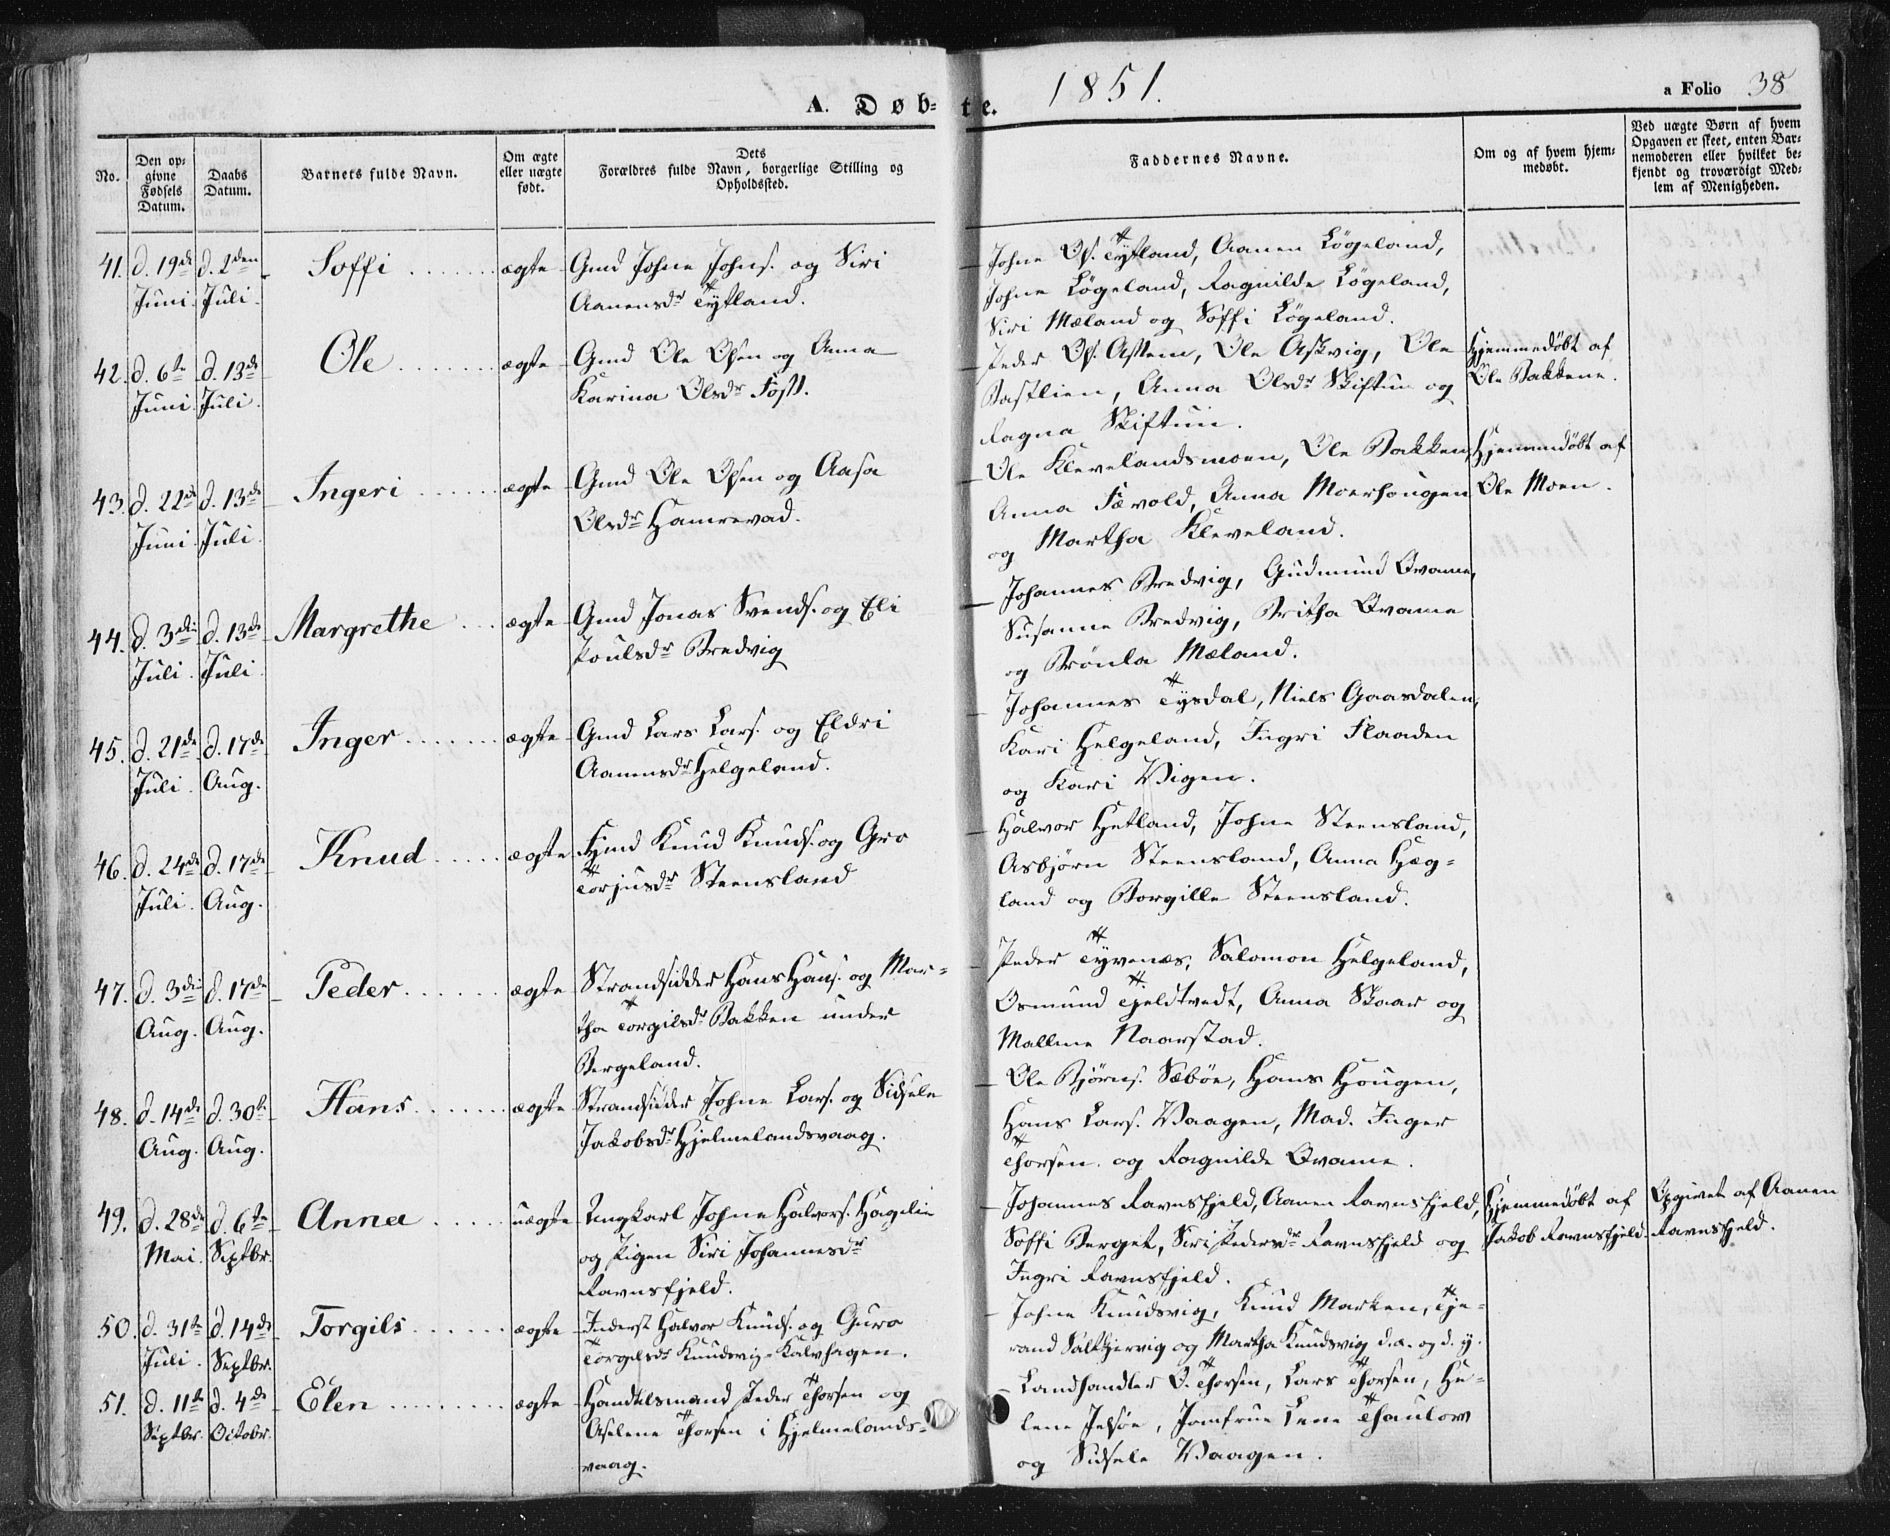 A. Døbte. 1851. a Folio 38
No.
Den opgivne Fødsels Datum.
Daabs Datum.
Barnets fulde Navn.
Om ægte eller uægte født.
Dets Forældres fulde Navn, borgerlige Stilling og Opholdssted.
Faddernes Navne.
Om og af hvem hjemmedøbt.
Ved uægte Børn af hvem Opgaven er skeet, enten Barnemoderen eller hvilket bekjendt og troværdigt Medlem af Menigheden.
41. d. 19de Juni. d. 2den Juli. Soffi ægte
Gmd Johne Johns. og Siri
Aanensdr Tytland.
Johne Ols. Tytland, Aanen Løgeland,
Johne Løgeland, Ragnilde Løgeland,
Siri Mæland og Soffi Løgeland.
42. d. 6te Juni. d. 13de Juli. Ole ægte
Gmd Ole Olsen og Anna
Karina Olsdr Fost.
Peder Ols. Astem, Ole Askvig, Ole
Bastlien, Anna Olsdr Skiftun og
Ragna Skiftun.
Hjemmedøbt af
Ole Bakkene.
43. d. 22de Juni. d. 13de Juli. Ingeri ægte
Gmd Ole Olsen og Aasa
Olsdr Hamrevad.
Ole Klevelandsmoen, Ole Bakken,
Anna Fævold, Anna Moerhougen
og Martha Kleveland.
Hjemmedøbt af
Ole Moen.
44. d. 3die Juli. d. 13de Juli. Margrethe ægte
Gmd Jonas Svends. og Eli
Poulsdr Bredvig
Johannes Bredvig, Gudmund Qvame,
Susanne Bredvig, Britha Qvame
og Brønla Mæland.
45. d. 21de Juli. d. 17de Aug. Inger ægte
Gmd Lars Lars. og Eldri
Aanensdr Helgeland.
Johannes Tysdal, Niels Gaardalen,
Kari Helgeland, Ingri Flaaden
og Kari Vigen.
46. d. 24de Juli. d. 17de Aug. Knud ægte
Hmd Knud Knuds. og Gro
Torjusdr Steensland
Halvor Hetland, Johne Steensland,
Asbjørn Steensland, Anna Hæg-
land og Borgille Steensland.
47. d. 3die Aug. d. 17de Aug. Peder ægte
Strandsidder Hans Hans. og Mar-
tha Torgilsdr Bakken under
Bergeland.
Peder Tyvenæs, Salomon Helgeland,
Osmund Tjeldtvedt, Anna Skaar og
Mallene Naarstad.
48. d. 14de Aug. d. 30te Aug. Hans ægte
Strandsidder Johne Lars. og Sidsele
Jakobsdr Hjelmelandsvaag.
Ole Bjørns. Sæbøe, Hans Hougen,
Hans Lars. Vaagen, Mad. Inger
Thorsen og Ragnilde Qvame.
49. d. 28de Mai. d. 6te Septbr. Anna uægte
Ungkarl Johne Halvors. Hagelie
og Pigen Siri Johannesdr
Ravnsfjeld.
Johannes Ravnsfjeld, Aanen Ravnsfjeld,
Soffi Berget, Siri Pedersdr Ravnsfjeld og
Ingri Ravnsfjeld.
Hjemmedøbt af
Jakob Ravnsfjeld.
Opgivet af Aanen
Ravnsfjeld.
50. d. 31te Juli. d. 14de Septbr. Torgils ægte
Inderst Halvor Knuds. og Guro
Torgilsdr Knudsvig-Kalvhagen.
Johne Knudsvig, Knud Marken, Tje-
rand Saltkjervig og Martha Knudsvig d.æ. og d. y.
51. d. 11te Septbr. d. 4de Octobr. Elen ægte
Handelsmand Peder Thorsen og
Aselene Thorsen i Hjelmelands-
vaag.
Landhandler O. Thorsen, Lars Thorsen, He-
lene Jelsøe, Jomfrue Lene Thaulow
og Sidsele Vaagen.